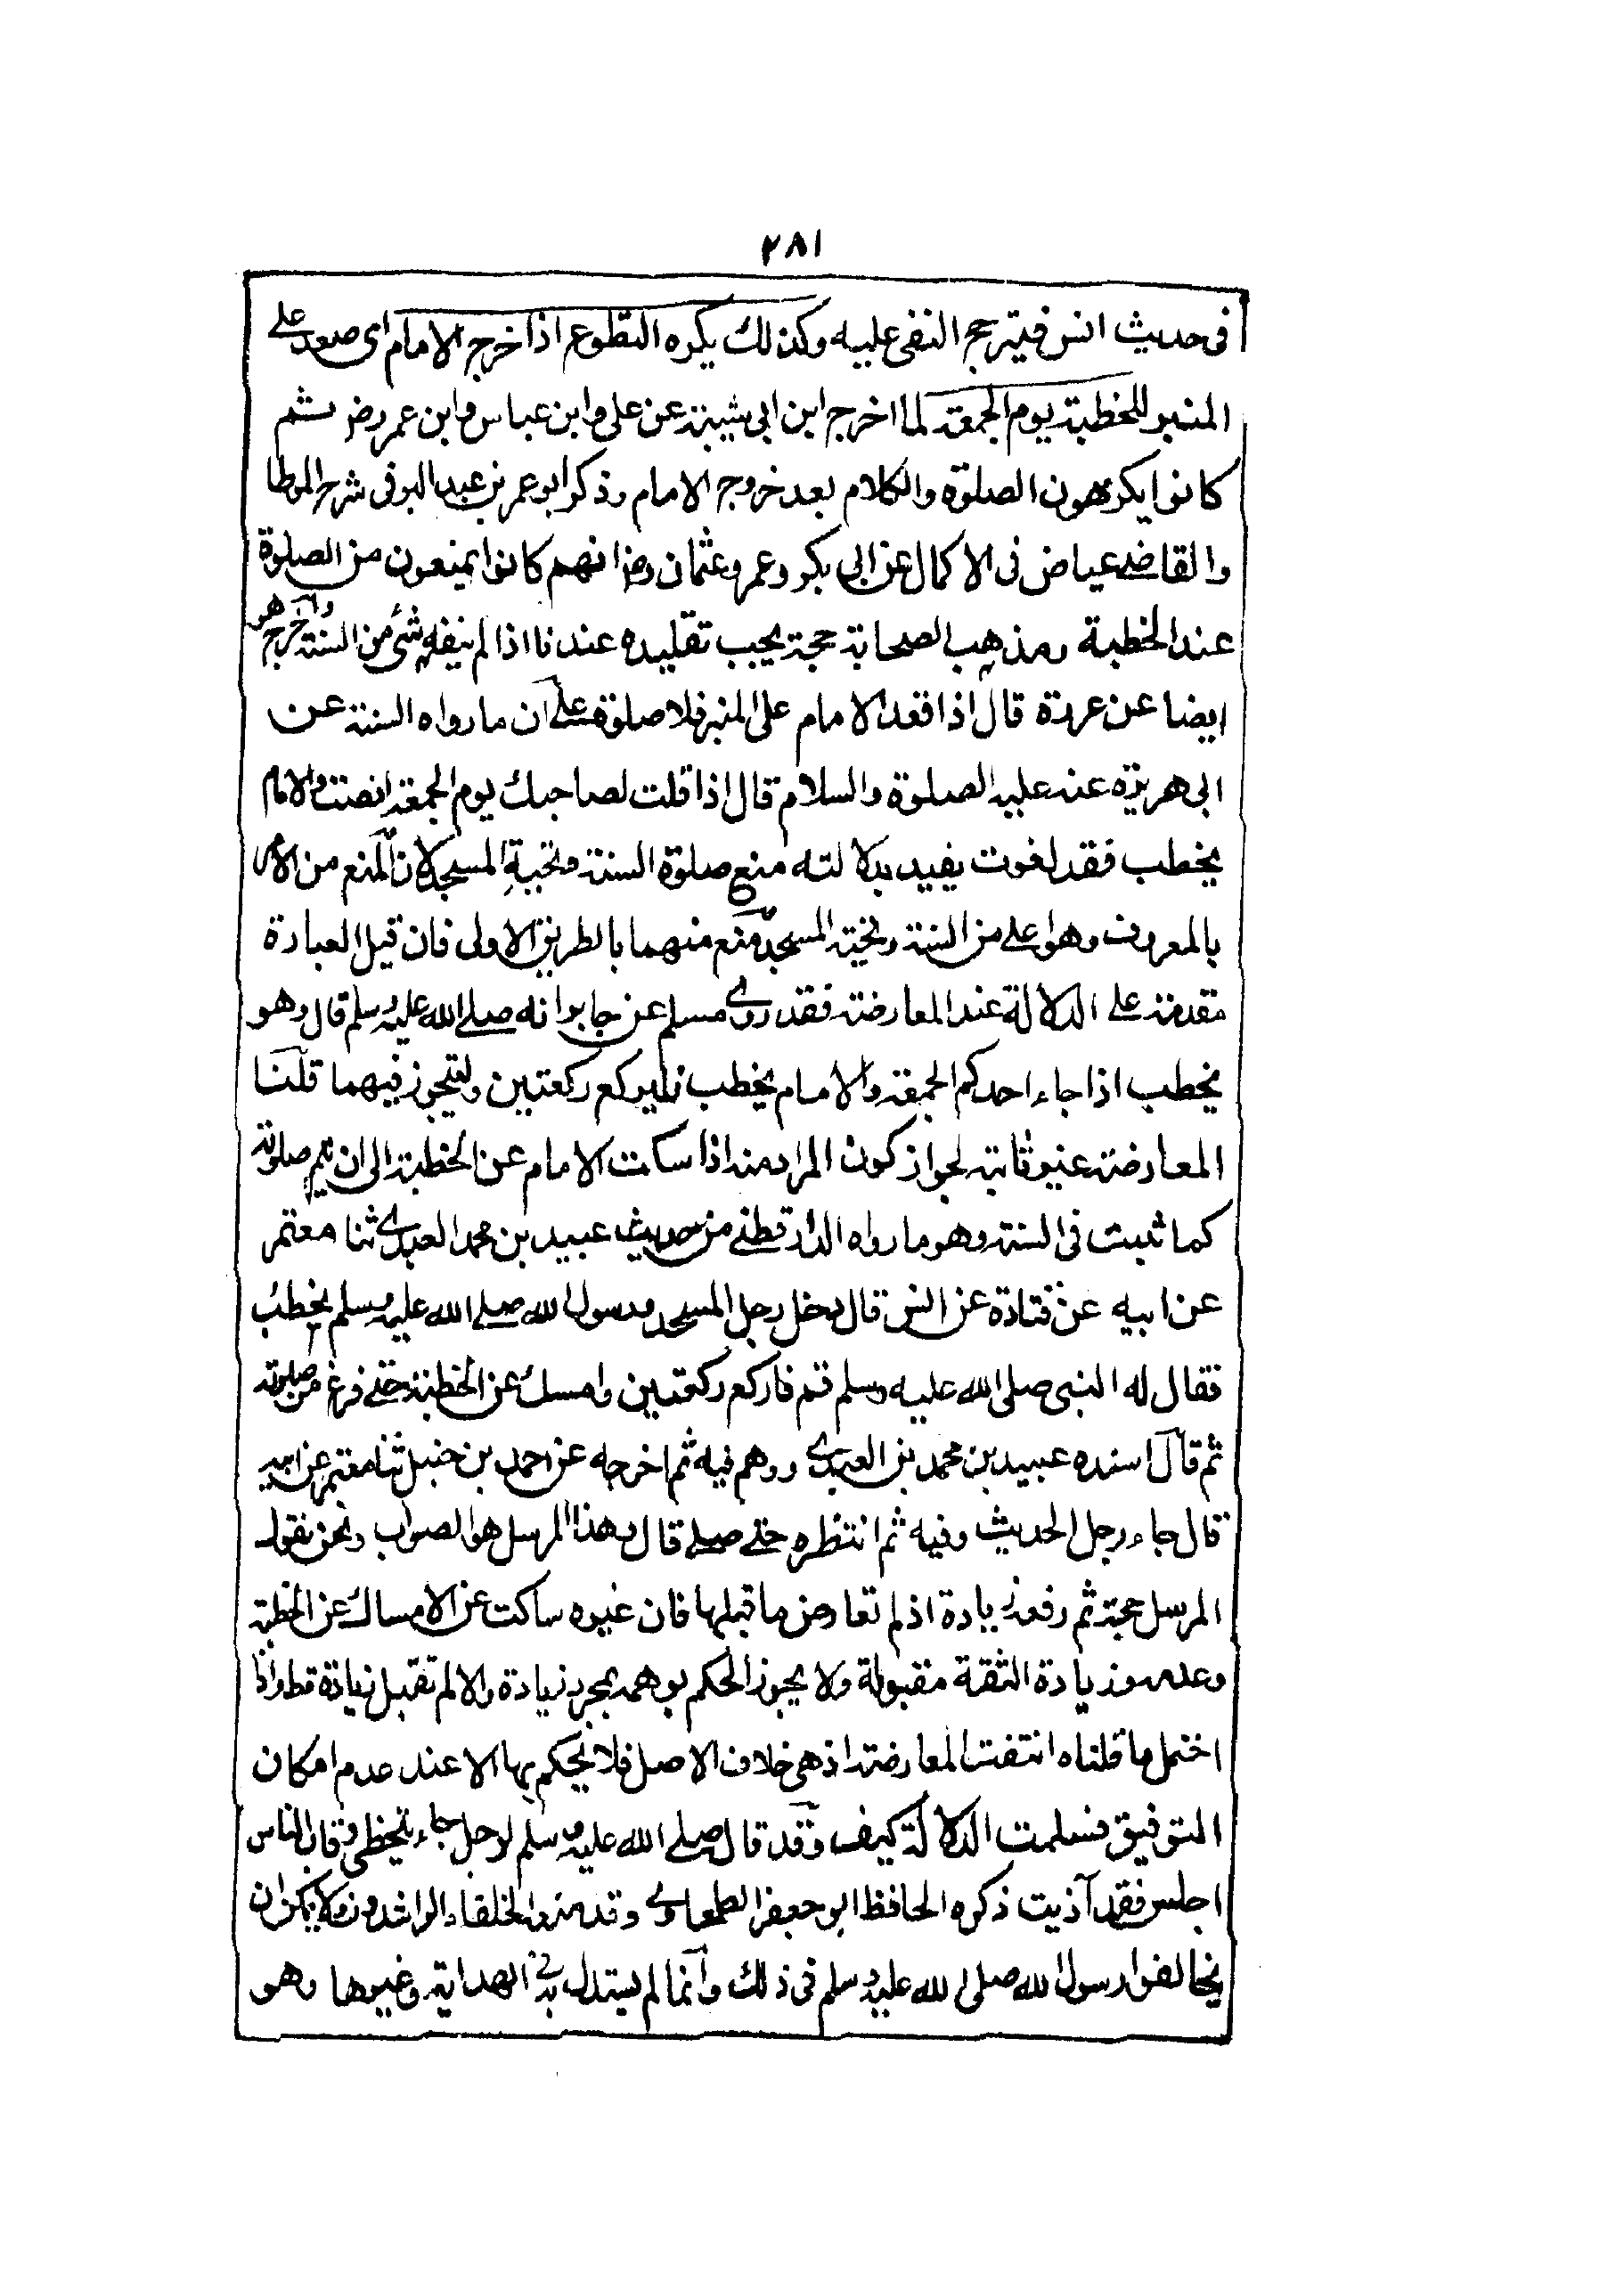 ٢٨١
فى حديث انس فيترجح النفى عليه وكذلك يكره التطوع اذا خرج الامام اى صعد على
المنبر للخطبة يوم الجمعة لما اخرج ابن ابى شيبة عن على وابن عباس وابن عمر رضى
كانوا يكرهون الصلوة والكلام بعد خروج الامام وذكر ابو عمر بن عبد البر فى شرح الموطا
والقاضے عياض فى الاكمال عن ابى بكر وعمر وعثمان رض انهم كانوا يمنعون من الصلوة
عند الخطبة ومذهب الصحابة حجة يجب تقليده عندنا اذا لم ينفه شئ من السنة واخرج هو
ايضا عن عروة قال اذا قعد الامام على المنبر فلا صلوة على ان ما رواه الستة عن
ابى هريرة عنه عليه الصلوة والسلام قال اذا قلت لصاحبك يوم الجمعة انصت والامام
يخطب فقد لغوت يفيد بدلالته منع صلوة السنة وتحية المسجد لان المنع من الامر
بالمعروف وهو اعلى من السنة وتحية المسجد منع منهما بالطريق الاولى فان قيل العبارة
مقدمة على الدلالة عند المعارضة فقد روى مسلم عن جابر انه صلے الله عليه وسلم قال وهو
يخطب اذا جاء احدكم الجمعة والامام يخطب فليركع ركعتين وليتجوز فيهما قلنا
المعارضة غير ثابتة لجواز كون المراد منه اذا سكت الامام عن الخطبة الى ان يتم صلوته
كما ثبت فى السنة وهو ما رواه الدارقطنے من حديث عبيد بن محمد العبدى ثنا معتمر
عن ابيه عن قتادة عن انس قال دخل رجل المسجد ورسول الله صلے الله عليه وسلم يخطب
فقال له النبى صلى الله عليه وسلم قم فاركع ركعتين وامسك عن الخطبة حتے فرغ من صلوته
ثم قال اسنده عبيد بن محمد بن العبدى ووهم فيه ثم اخرجه عن احمد بن حنبل ثنا معتمر عن ابيه
قال جاء رجل الحديث وفيه ثم انتظره حتے صلے قال وهذا المرسل هو الصواب ونحن نقول
المرسل حجة ثم رفعه زيادة اذ لم تعارض ما قبلها فان غيره ساكت عن الامساك عن الخطبة
وعدمه وزيادة الثقة مقبولة ولا يجوز الحكم بوهمه بمجرد زيادة والا لم تقبل زيادة قط واذا
احتمل ما قلناه انتفت المعارضة اذ هى خلاف الاصل فلا يحكم بها الا عند عدم امكان
التوفيق فسلمت الدلالة كيف وقد قال صلے الله عليه وسلم لرجل جاء يتخطى رقاب الناس
اجلس فقد آذيت ذكره الحافظ ابو جعفر الطحاوى وقد منع الخلفاء الراشدون ولا يمكن ان
يخالفوا رسول الله صلى الله عليه وسلم فى ذلك وانما لم يستدل به فى الهداية وغيرها وهو